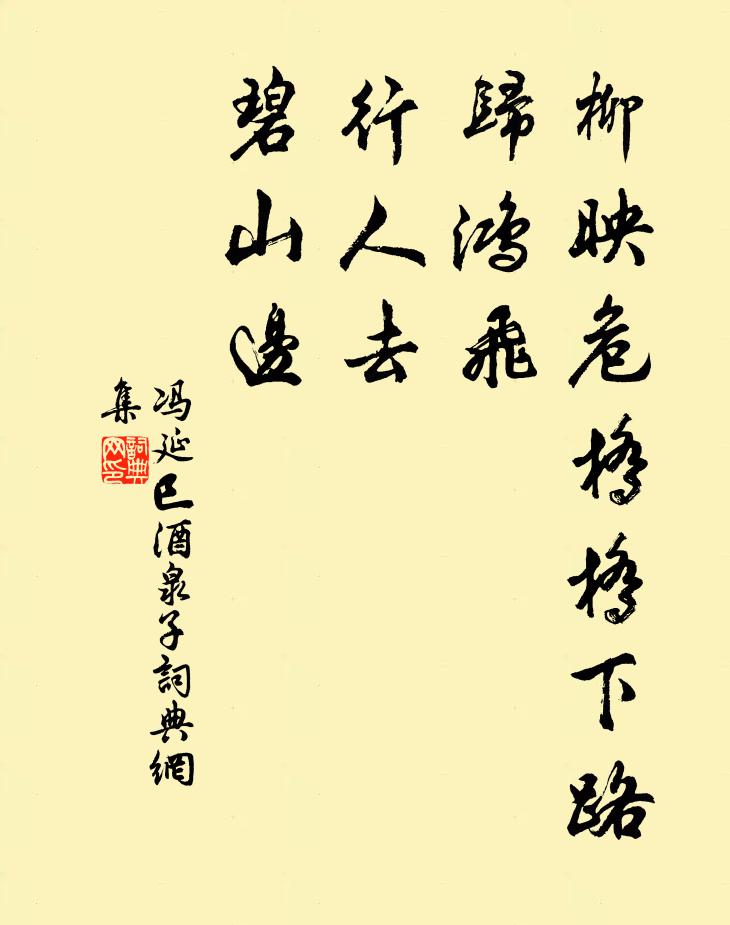 柳映危橋橋下路
歸鴻飛
行人去
碧山邊
冯延巳酒泉子詞典網
集
詞典網印